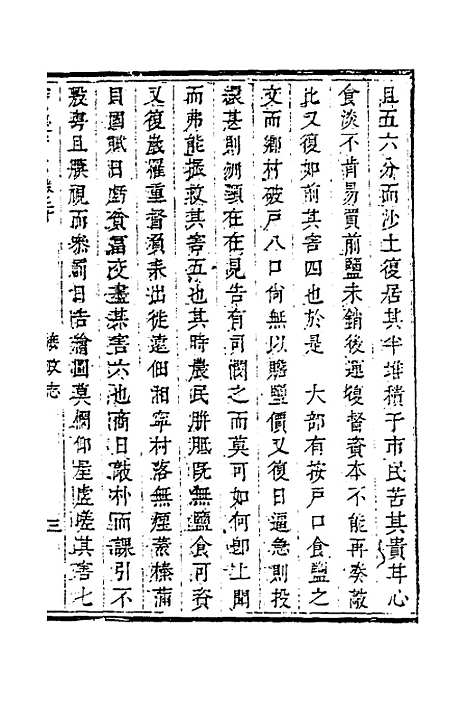 且五六分而沙土復居其半堆積于市民苦其貴耳心
食淡不肯易買前鹽未銷後運復督資本不能再奏敲
比又復如前其害四也於是　大部有按戶口食鹽之
文而鄉村破戶八口尚無以贍鹽價又復日逼急則投
繯甚則刎頸在在見告有司憫之而莫可如何卽上聞
而弗能振救其害五也其時農民胼胝旣無鹽食可資
又復嚴羅重督須耒出徙遠佃相率村落無煙蓁榛蒲
目國賦日虧貧富交盡其害六也商日敲朴而課引不
殺專且鷹視而參罰日告繪圖莫憫仰屋虛嗟其害七
鹽政志
三